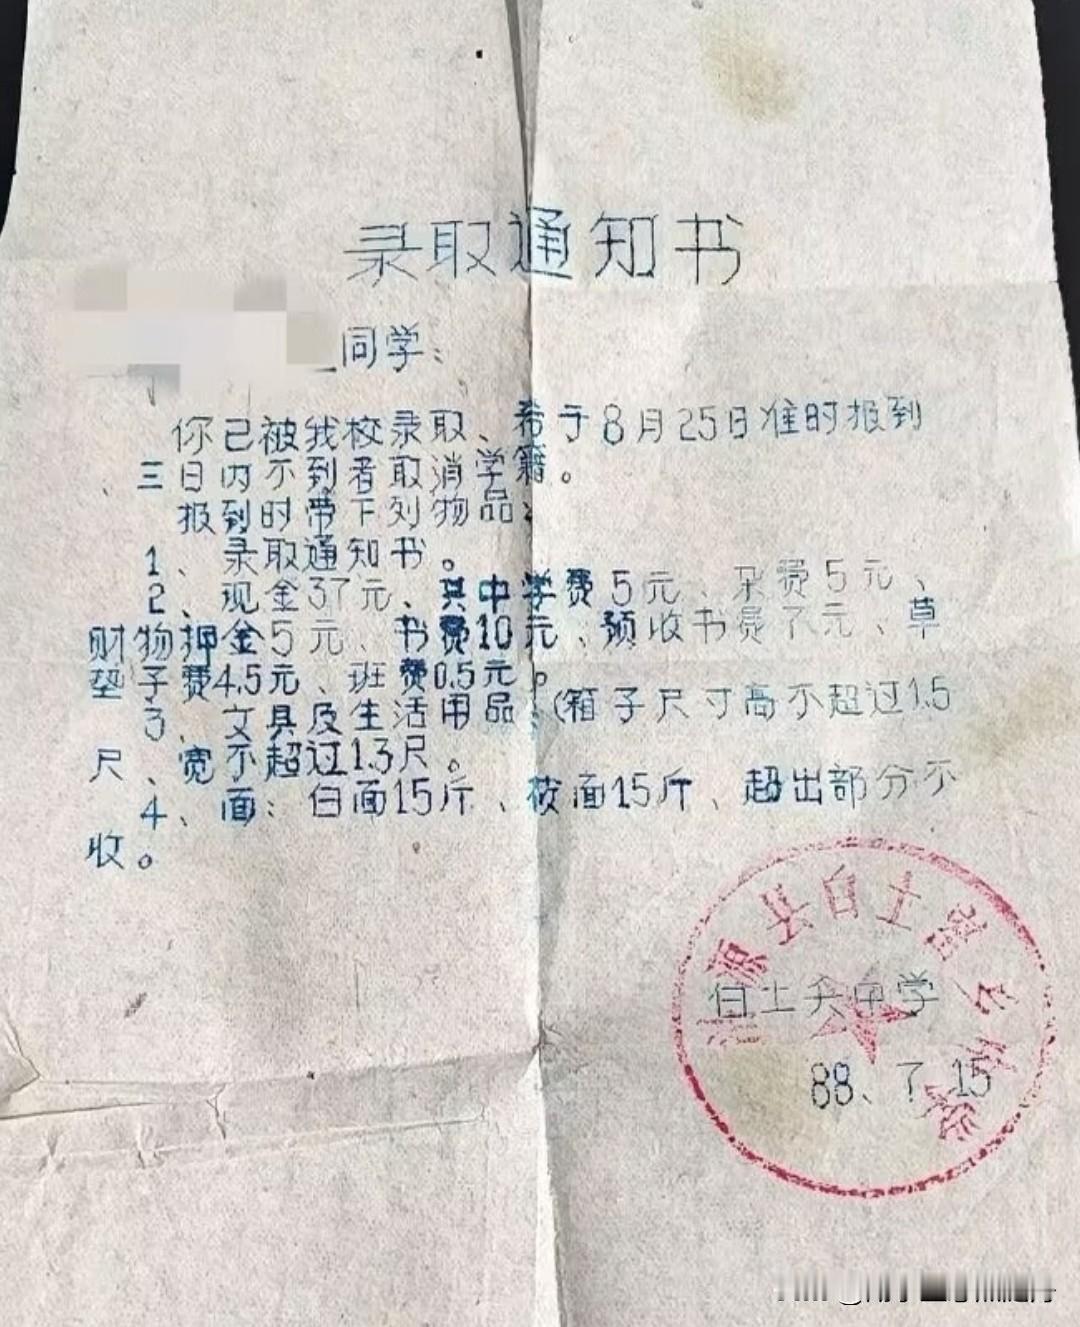 录取通知书
同学：
你已被我校录取、希于8月25日准时报到
三日内不到者取消学籍。
报到时带下列物品：
1、录取通知书。
2、现金37元、其中学费5元、杂费5元、
财物押金5元、书费10元、预收书费7元、草
垫子费4.5元、班费0.5元。
3、文具及生活用品：(箱子尺寸高不超过1.5
尺、宽不超过1.3尺。
4、面：白面15斤、莜面15斤、超出部分不
收。
源县白土窑乡
白土窑中学
88、7、15